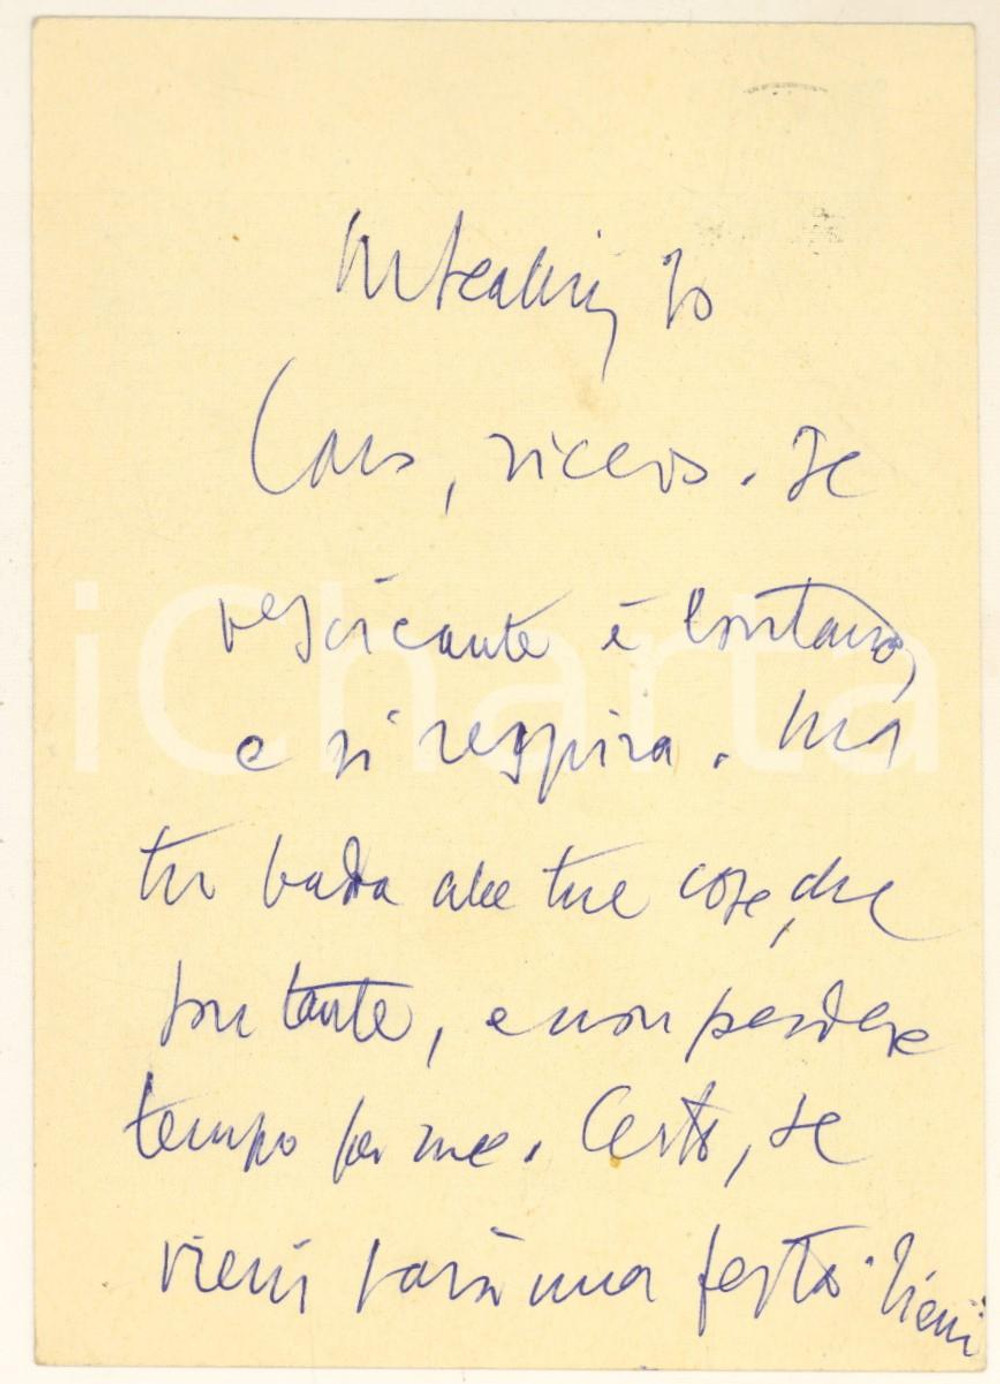 Caro, ricevo. Se
vescicante è lontano,
e si respira. Ma
tu bada alle tue cose, che
son tante, e non perdere
tempo per me. Certo, se
vieni sarà una festa. Vieni
iCharta